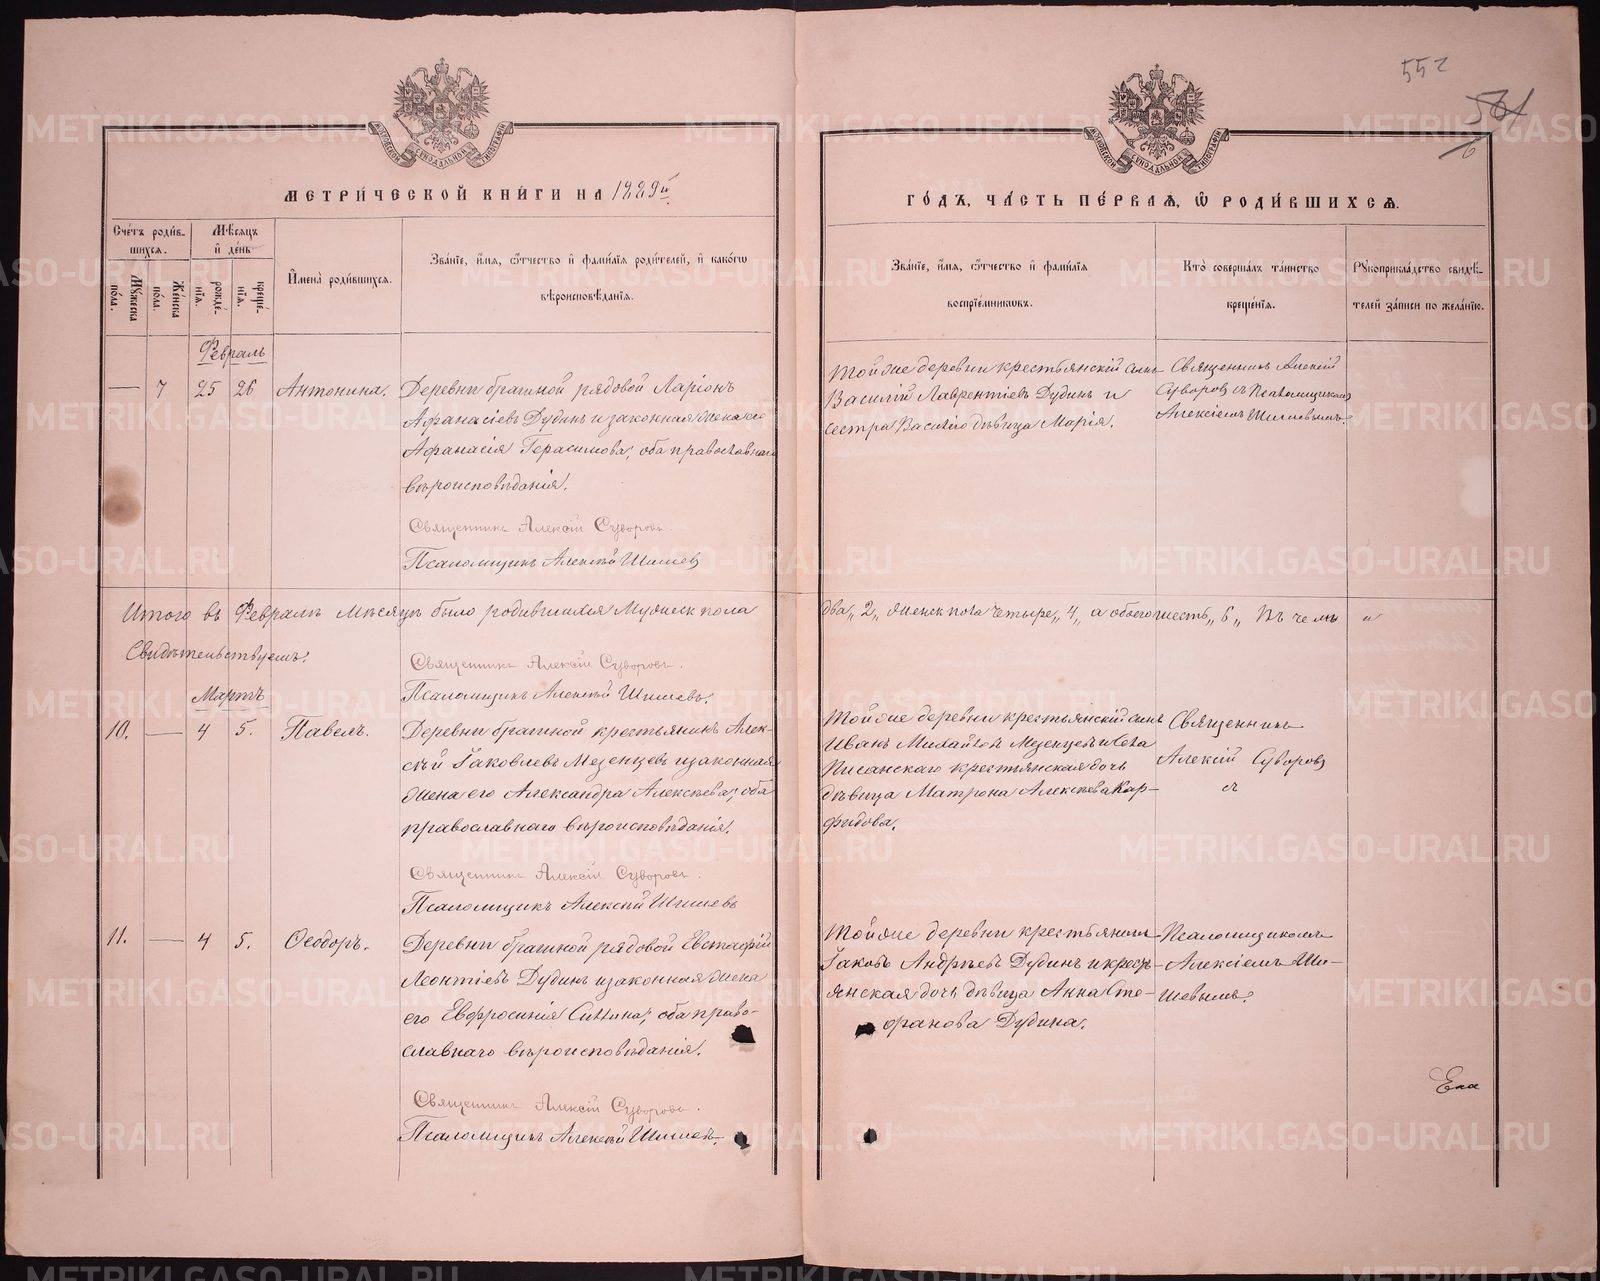 552
МЕТРИ́ЧЕСКОЙ КНИ́ГИ НА 1889й
ГО́ДЪ, ЧА́СТЬ ПЕ́РВАЯ, Ѡ РОДИ́ВШИХСЯ.
МОСКОВСКОЙ СѴНОДАЛЬНОЙ ТИПОГРАФІИ
Сче́тъ роди́в-
шихся.
Мѣ́сяцъ
и де́нь
Мꙋ́жеска
по́ла.
Же́нска
по́ла.
рожде́-
нія.
креще́-
нія.
И҆мена̀ роди́вшихся.
Зва́ніе, и҆́мя, ѻ҆́тчество и҆ фами́лія роди́телей, и҆ како́гѡ
вѣроисповѣ́данія.
Зва́ніе, и҆́мя, ѻ҆́тчество и҆ фами́лія
воспріе́мникѡвъ.
Кто̀ соверша́лъ та́инство
креще́нія.
Рꙋкоприкла́дство свидѣ́-
телей за́писи по жела́нію.
Февраль
— 7 25 26 Антонина.
Деревни брагиной рядовой Ларіонъ
Афанасіевъ Дудинъ и законная жена его
Афанасія Герасимова, оба православнаго
вѣроисповѣданія.
Священникъ Алексій Суворовъ
Псаломщикъ Алексѣй Шишев
Тойже деревни крестьянскій сынъ
Василій Лаврентіевъ Дудинъ и
сестра Василію дѣвица Марія.
Священникъ Алексій
Суворовъ съ Псаломщикомъ
Алексіемъ Шишевымъ.
Итого въ Февралѣ Мѣсяцѣ было родившихся Мужеск пола два „2„ Женск пола четыре „4„ а обоего шесть „6„ Въ чемъ и
Свидѣтельствуемъ:
Священникъ Алексій Суворовъ.
Псаломщикъ Алексѣй Шишевъ.
Мартъ
10. — 4 5. Павелъ.
Деревни брагиной крестьянинъ Алек-
сѣй Іаковлевъ Мезенцевъ и законная
жена его Александра Алексѣева, оба
православнаго вѣроисповѣданія.
Священникъ Алексій Суворовъ.
Псаломщикъ Алексѣй Шишевъ
Тойже деревни крестьянскій сынъ
Иванъ Михайловъ Мезенцевъ и села
Писанскаго крестьянская дочь
дѣвица Матрона Алексѣева Кар-
фидова.
Священникъ
Алексій Суворовъ
11. — 4 5. Ѳеодоръ.
Деревни брагиной рядовой Евстафій
Леонтіевъ Дудинъ и законная жена
его Евфросинія Силина, оба право-
славнаго вѣроисповѣданія.
Священникъ Алексій Суворовъ.
Псаломщикъ Алексѣй Шишевъ.
Тойже деревни крестьянинъ
Іаковъ Андреевъ Дудинъ и крест-
янская дочь дѣвица Анна Сте-
фанова Дудина.
Псаломщикомъ
Алексіемъ Ши-
шевымъ.
Ека
METRIKI.GASO-URAL.RU